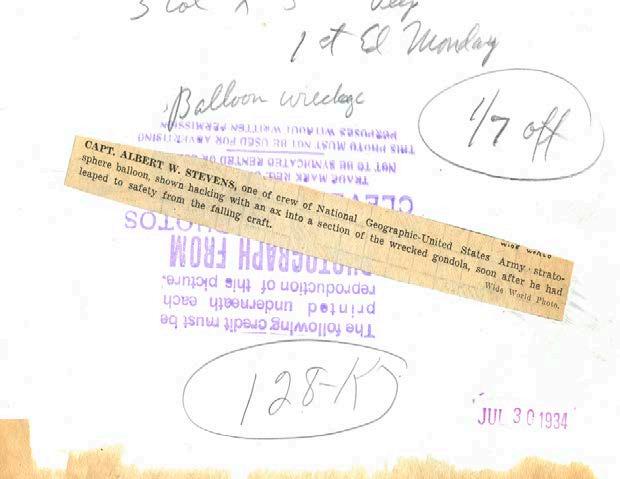 3 Col x 5 Deep
1st Ed Monday
Balloon wreckage
1/7 off
PURPOSES WITHOUT WRITTEN PERMISSION
THIS PHOTO MUST NOT BE USED FOR ADVERTISING
NOT TO BE SYNDICATED RENTED OR
TRADE MARK REG.
CAPT. ALBERT W. STEVENS, one of crew of National Geographic-United States Army strato-
sphere balloon, shown hacking with an ax into a section of the wrecked gondola, soon after he had
leaped to safety from the falling craft.
Wide World Photo.
WIDE WORLD
PHOTOS
PHOTOGRAPH FROM
reproduction of this picture.
printed underneath each
The following credit must be
128-K
JUL 30 1934